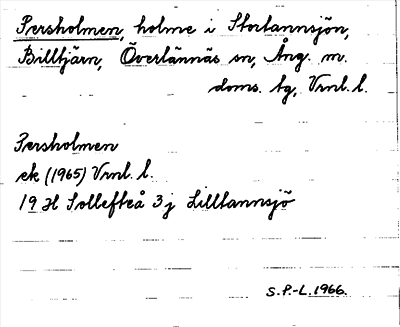 Persholmen, holme i Stortannsjön,
Billtjärn, Överlännäs sn, Ång. m.
doms. tg, Vrnl. l.
Persholmen
ek (1965) Vrnl. l.
19 H Sollefteå 3 j Lilltannsjö
S.P.-L. 1966.